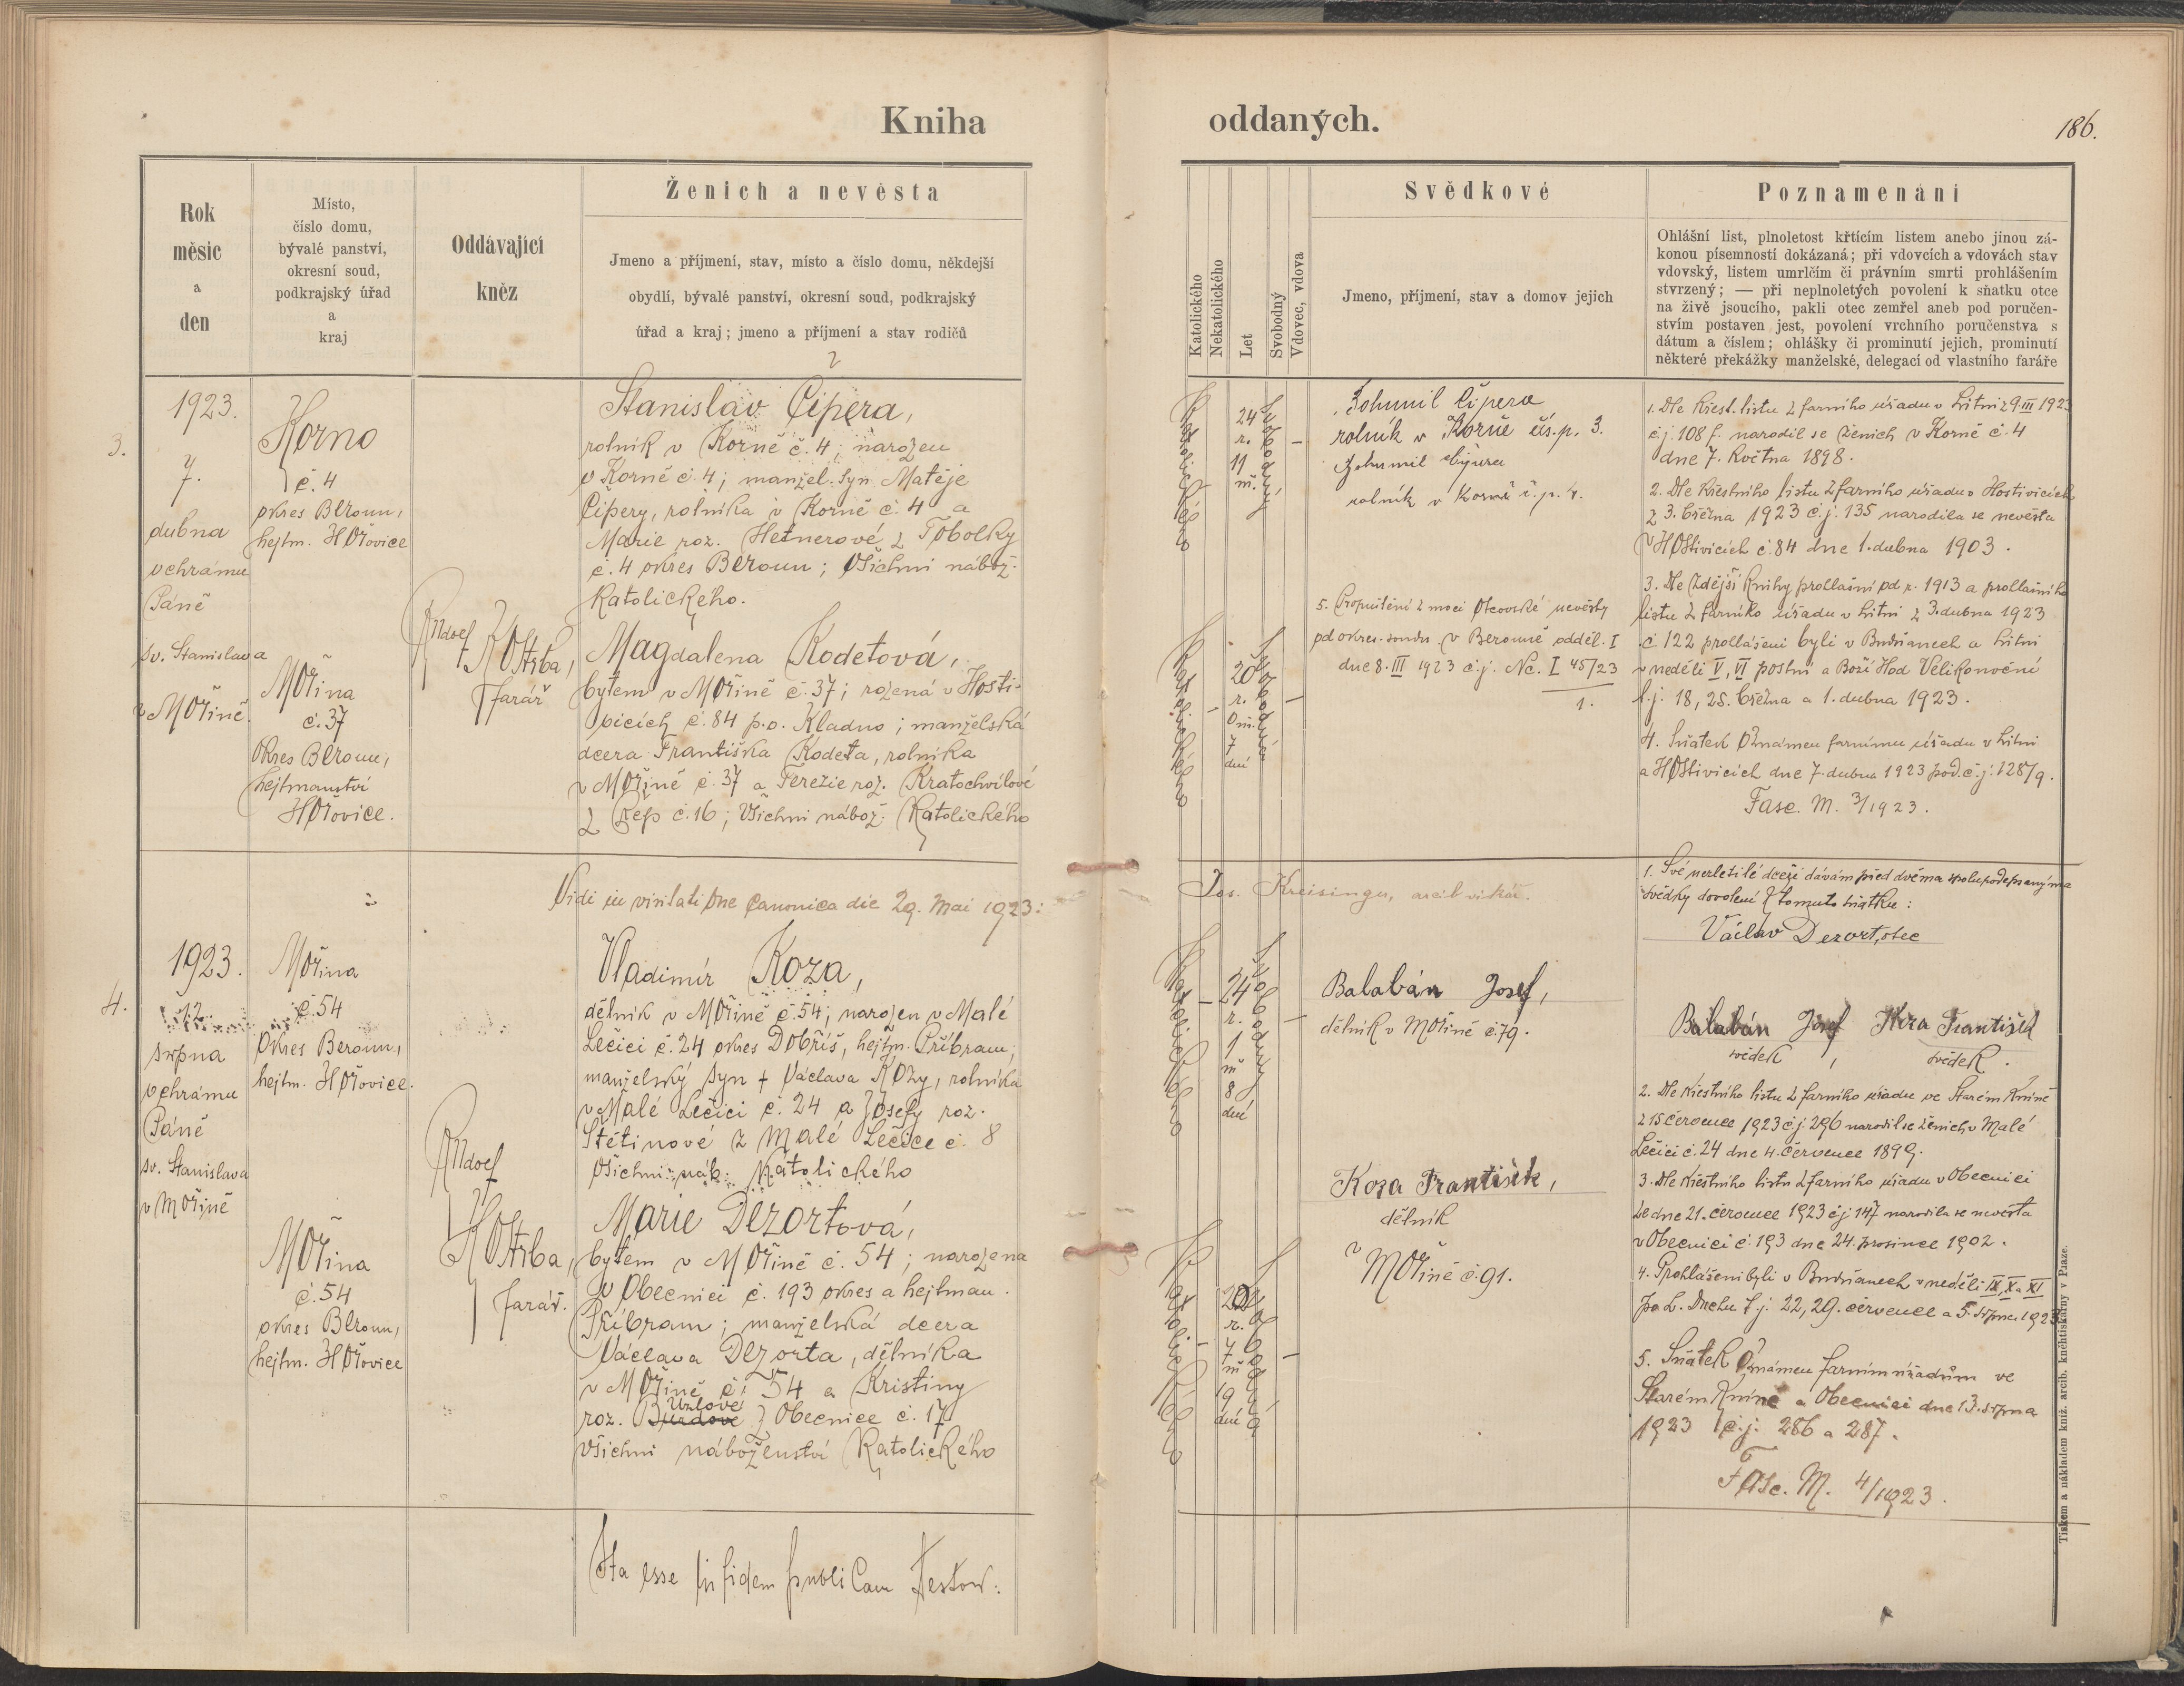 Kniha
oddaných.
186.
Rok
měsíc
a
den
Místo,
číslo domu,
bývalé panství,
okresní soud,
podkrajský úřad
a
kraj
Oddávající
kněz
Ženich a nevěsta
Jmeno a příjmení, stav, místo a číslo domu, někdejší
obydlí, bývalé panství, okresní soud, podkrajský
úřad a kraj; jmeno a příjmení a stav rodičů
Katolického
Nekatolického
Let
Svobodný
Vdovec, vdova
Svědkové
Jmeno, příjmení, stav a domov jejich
Poznamenání
Ohlášní list, plnoletost křtícím listem anebo jinou zá-
konou písemností dokázaná; při vdovcích a vdovách stav
vdovský, listem umrlčím či právním smrti prohlášením
stvrzený; — při neplnoletých povolení k sňatku otce
na živě jsoucího, pakli otec zemřel aneb pod poručen-
stvím postaven jest, povolení vrchního poručenstva s
dátum a číslem; ohlášky či prominutí jejich, prominutí
některé překážky manželské, delegací od vlastního faráře
3.
1923.
7.
dubna
v chrámu
Páně
sv. Stanislava
v Mořině.
Korno
č. 4
okres Beroun,
hejtm. Hořovice
Mořina
č. 37
Okres Beroun,
hejtmanství
Hořovice.
Rudolf
Kostrba,
farář
Stanislav Čipera,
rolník v Korně č. 4; narozen
v Korně č. 4; manžel. syn Matěje
Čipery, rolníka v Korně č. 4 a
Marie roz. Hetnerové z Tobolky
č. 4 okres Beroun; všichni nábož.
Katolického.
Magdalena Kodetová,
bytem v Mořině č. 37; rozená v Hosti-
vicích č. 84 p.o. Kladno; manželská
dcera Františka Kodeta, rolníka
v Mořině č. 37 a Terezie roz. Kratochvílové
z Řep č. 16; všichni nábož. Katolického
Katolického
24
r.
11
m.
Svobodný
Katolického
20
r.
0 m.
7
dní
Svobodná
Bohumil Čipera
rolník v Korně čís. p. 3.
Bohumil Čipera
rolník v Korně č. p. 4.
5. Propuštění z moci Otcovské nevěsty
od okres. soudu v Berouně odděl. I
dne 8. III 1923 č.j. Nc. I 45/23
1.
1. Dle křest. listu z farního úřadu v Litni z 9. III 1923
č.j. 108 f. narodil se ženich v Korně č. 4
dne 7. Května 1898.
2. Dle křestního listu z farního úřadu v Hostivicích
z 3. března 1923 č.j. 135 narodila se nevěsta
v Hostivicích č. 84 dne 1. dubna 1903.
3. Dle zdejší knihy prohlášní od r. 1913 a prohlašního
listu z farního úřadu v Litni z 3. dubna 1923
č 122 prohlášeni byli v Budňanech a Litni
v neděli V, VI postní a Boží Hod Velikonoční
t.j. 18, 25. března a 1. dubna 1923.
4. Sňatek oznámen farnímu úřadu v Litni
a Hostivicích dne 7. dubna 1923 pod. č.j. 128/9.
Fasc. M. 3/1923.
Vidi in visitatione canonica die 29. Mai 1923:
Jos. Kreisinger, arcib. vikář.
4.
1923.
12.
srpna
v chrámu
Páně
sv. Stanislava
v Mořině
Mořina
č. 54
Okres Beroun,
hejtm. Hořovice.
Mořina
č. 54
okres Beroun,
hejtm. Hořovice
Rudolf
Kostrba,
farář.
Vladimír Koza,
dělník v Mořině č. 54; narozen v Malé
Lečici č. 24 okres Dobříš, hejtm. Příbram;
manželský syn + Václava Kozy, rolníka
v Malé Lečici č. 24 a Josefy roz.
Štětinové z Malé Lečice č. 8
všichni náb. Katolického
Marie Dezortová,
bytem v Mořině č. 54; narozena
v Obecnici č. 193 okres a hejtman.
Příbram; manželská dcera
Václava Dezorta, dělníka
v Mořině č. 54 a Kristiny
Uzlové
roz. z Obecnice č. 17
všichni náboženství Katolického
Katolického
24
r.
1
m
8
dní
Svobodný
Katolického
20
r.
7
m
19
dní
Svobodná
Balabán Josef,
dělník v Mořině č. 79.
Koza František,
dělník
v Mořině č. 91.
1. Své nezletilé dceři dávám před dvěma spolupodepsanýma
svědky dovolení k tomuto sňatku:
Václav Dezort, otec
Balabán Josef Koza František
svědek, svědek.
2. Dle křestního listu z farního úřadu ve Starém Kníně
z 15 července 1923 č.j. 296 narodil se ženich v Malé
Lečici č. 24 dne 4. července 1899.
3. Dle křestního listu z farního úřadu v Obecnici
ze dne 21. července 1923 č.j. 147 narodila se nevěsta
v Obecnici č. 193 dne 24. prosince 1902.
4. Prohlášeni byli v Budňanech v neděli IX, X a XI
po s. Duchu t.j. 22, 29. července a 5. srpna 1923
5. Sňatek oznámen farním úřadům ve
Starém Kníně a Obecnici dne 13. srpna
1923 č.j. 286 a 287.
Fasc. M. 4/1923.
Ita esse in fidem publicam testor:
Tiskem a nákladem kníž. arcib. knihtiskárny v Praze.